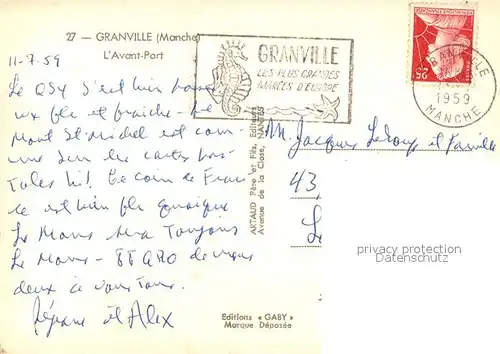 27 — GRANVILLE (Manche)
L'Avant-Port
11-7.59
Le QSY s'est bien passé
et fraîche - Le
Mont St Michel est com
me sur les cartes pos
tales hi! Ce coin de Fran
ce est bien quoique
Le Mans sera toujours
Le Mans - 88 QRO de nous
deux à vous tous.
et Alex
GRANVILLE
LES PLUS GRANDES
MARÉES D'EUROPE
GRANVILLE
1959
MANCHE
ARTAUD Père et Fils, Editeurs
Avenue de la Close, NANTES
M. Jacques Leloup et Famille
43,
L
privacy protection
VRAMI.COM
Editions « GABY »
Marque Déposée